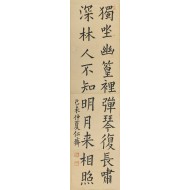 獨坐幽篁裡彈琴復長嘯
深林人不知明月来相照
己未仲夏仁齋